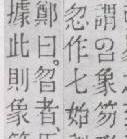 謂曶象笏
忽作七始
鄭曰。曶者。
據此則象